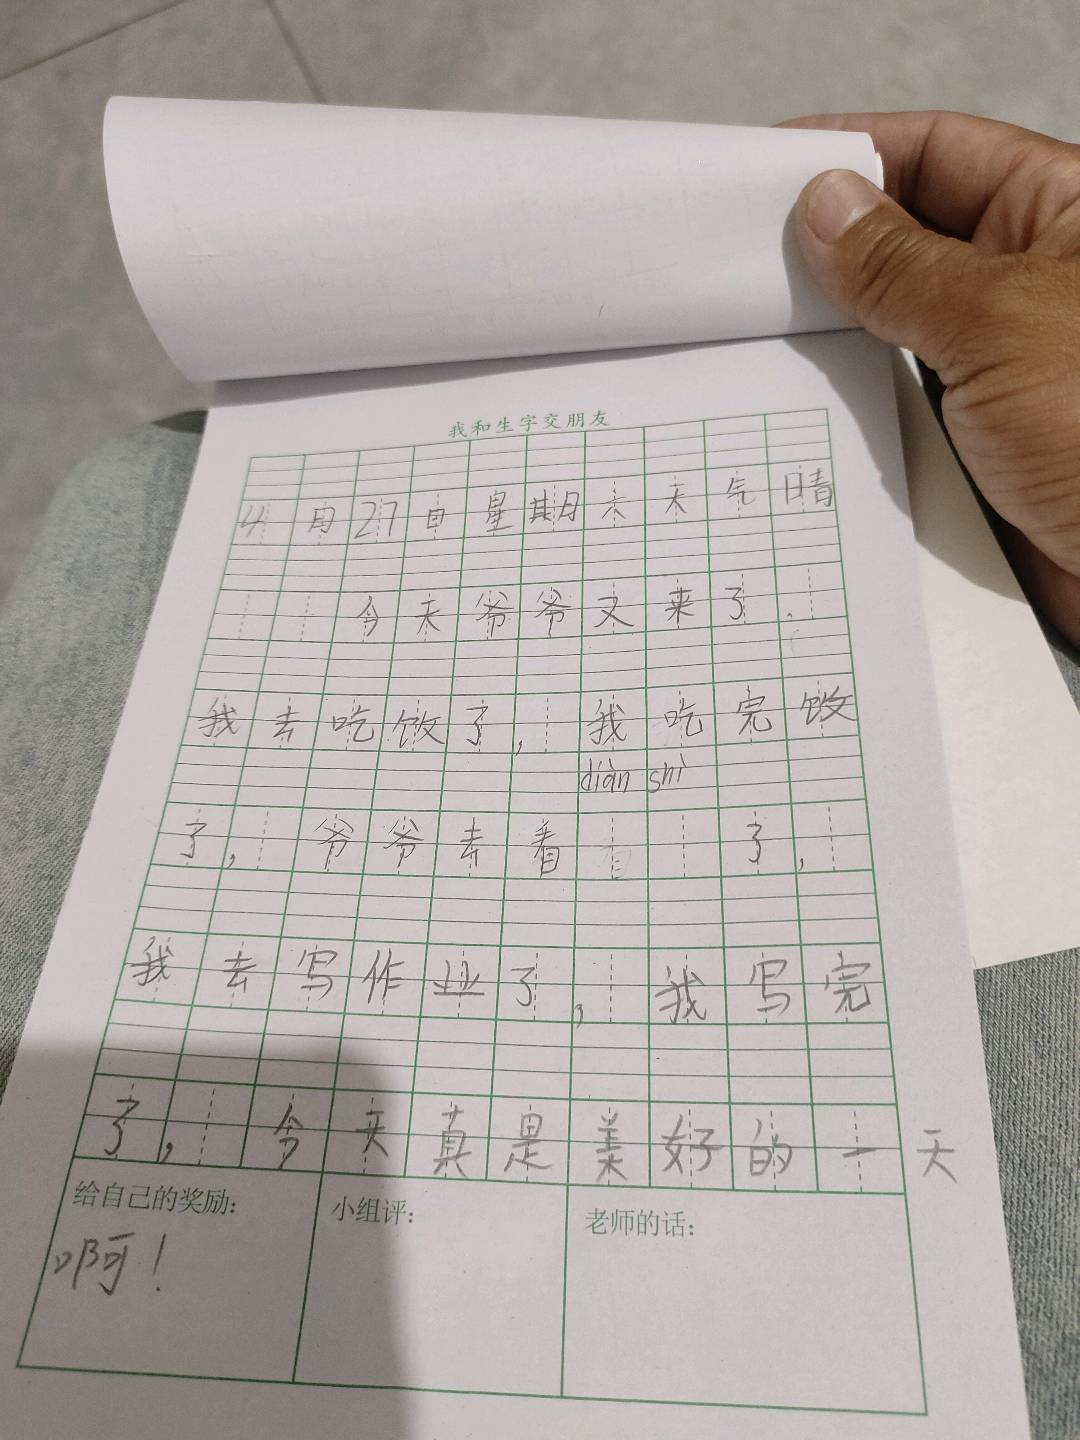 我和生字交朋友
4月27日星期六天气晴
今天爷爷又来了.
我去吃饭了,我吃完饭
diàn shì
了,爷爷去看了,
我去写作业了,我写完
了,今天真是美好的一天
给自己的奖励:
啊!
小组评:
老师的话: